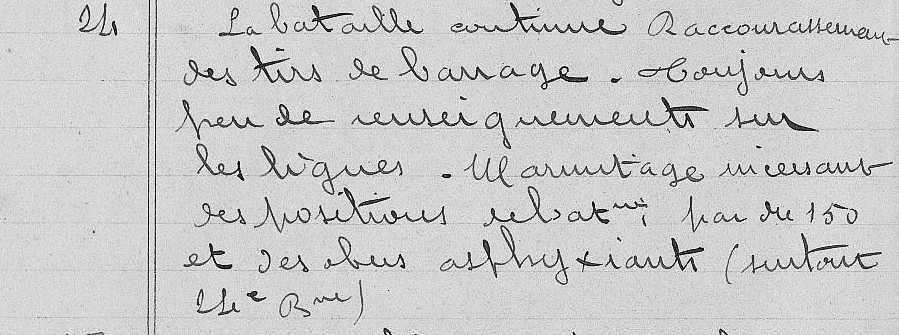 24 La bataille continue Raccourcissement
des tirs de barrage. Toujours
peu de renseignements sur
les lignes. Marmitage incessant
des positions de bat^ries par du 150
et des obus asphyxiants (surtout
24e Bie)